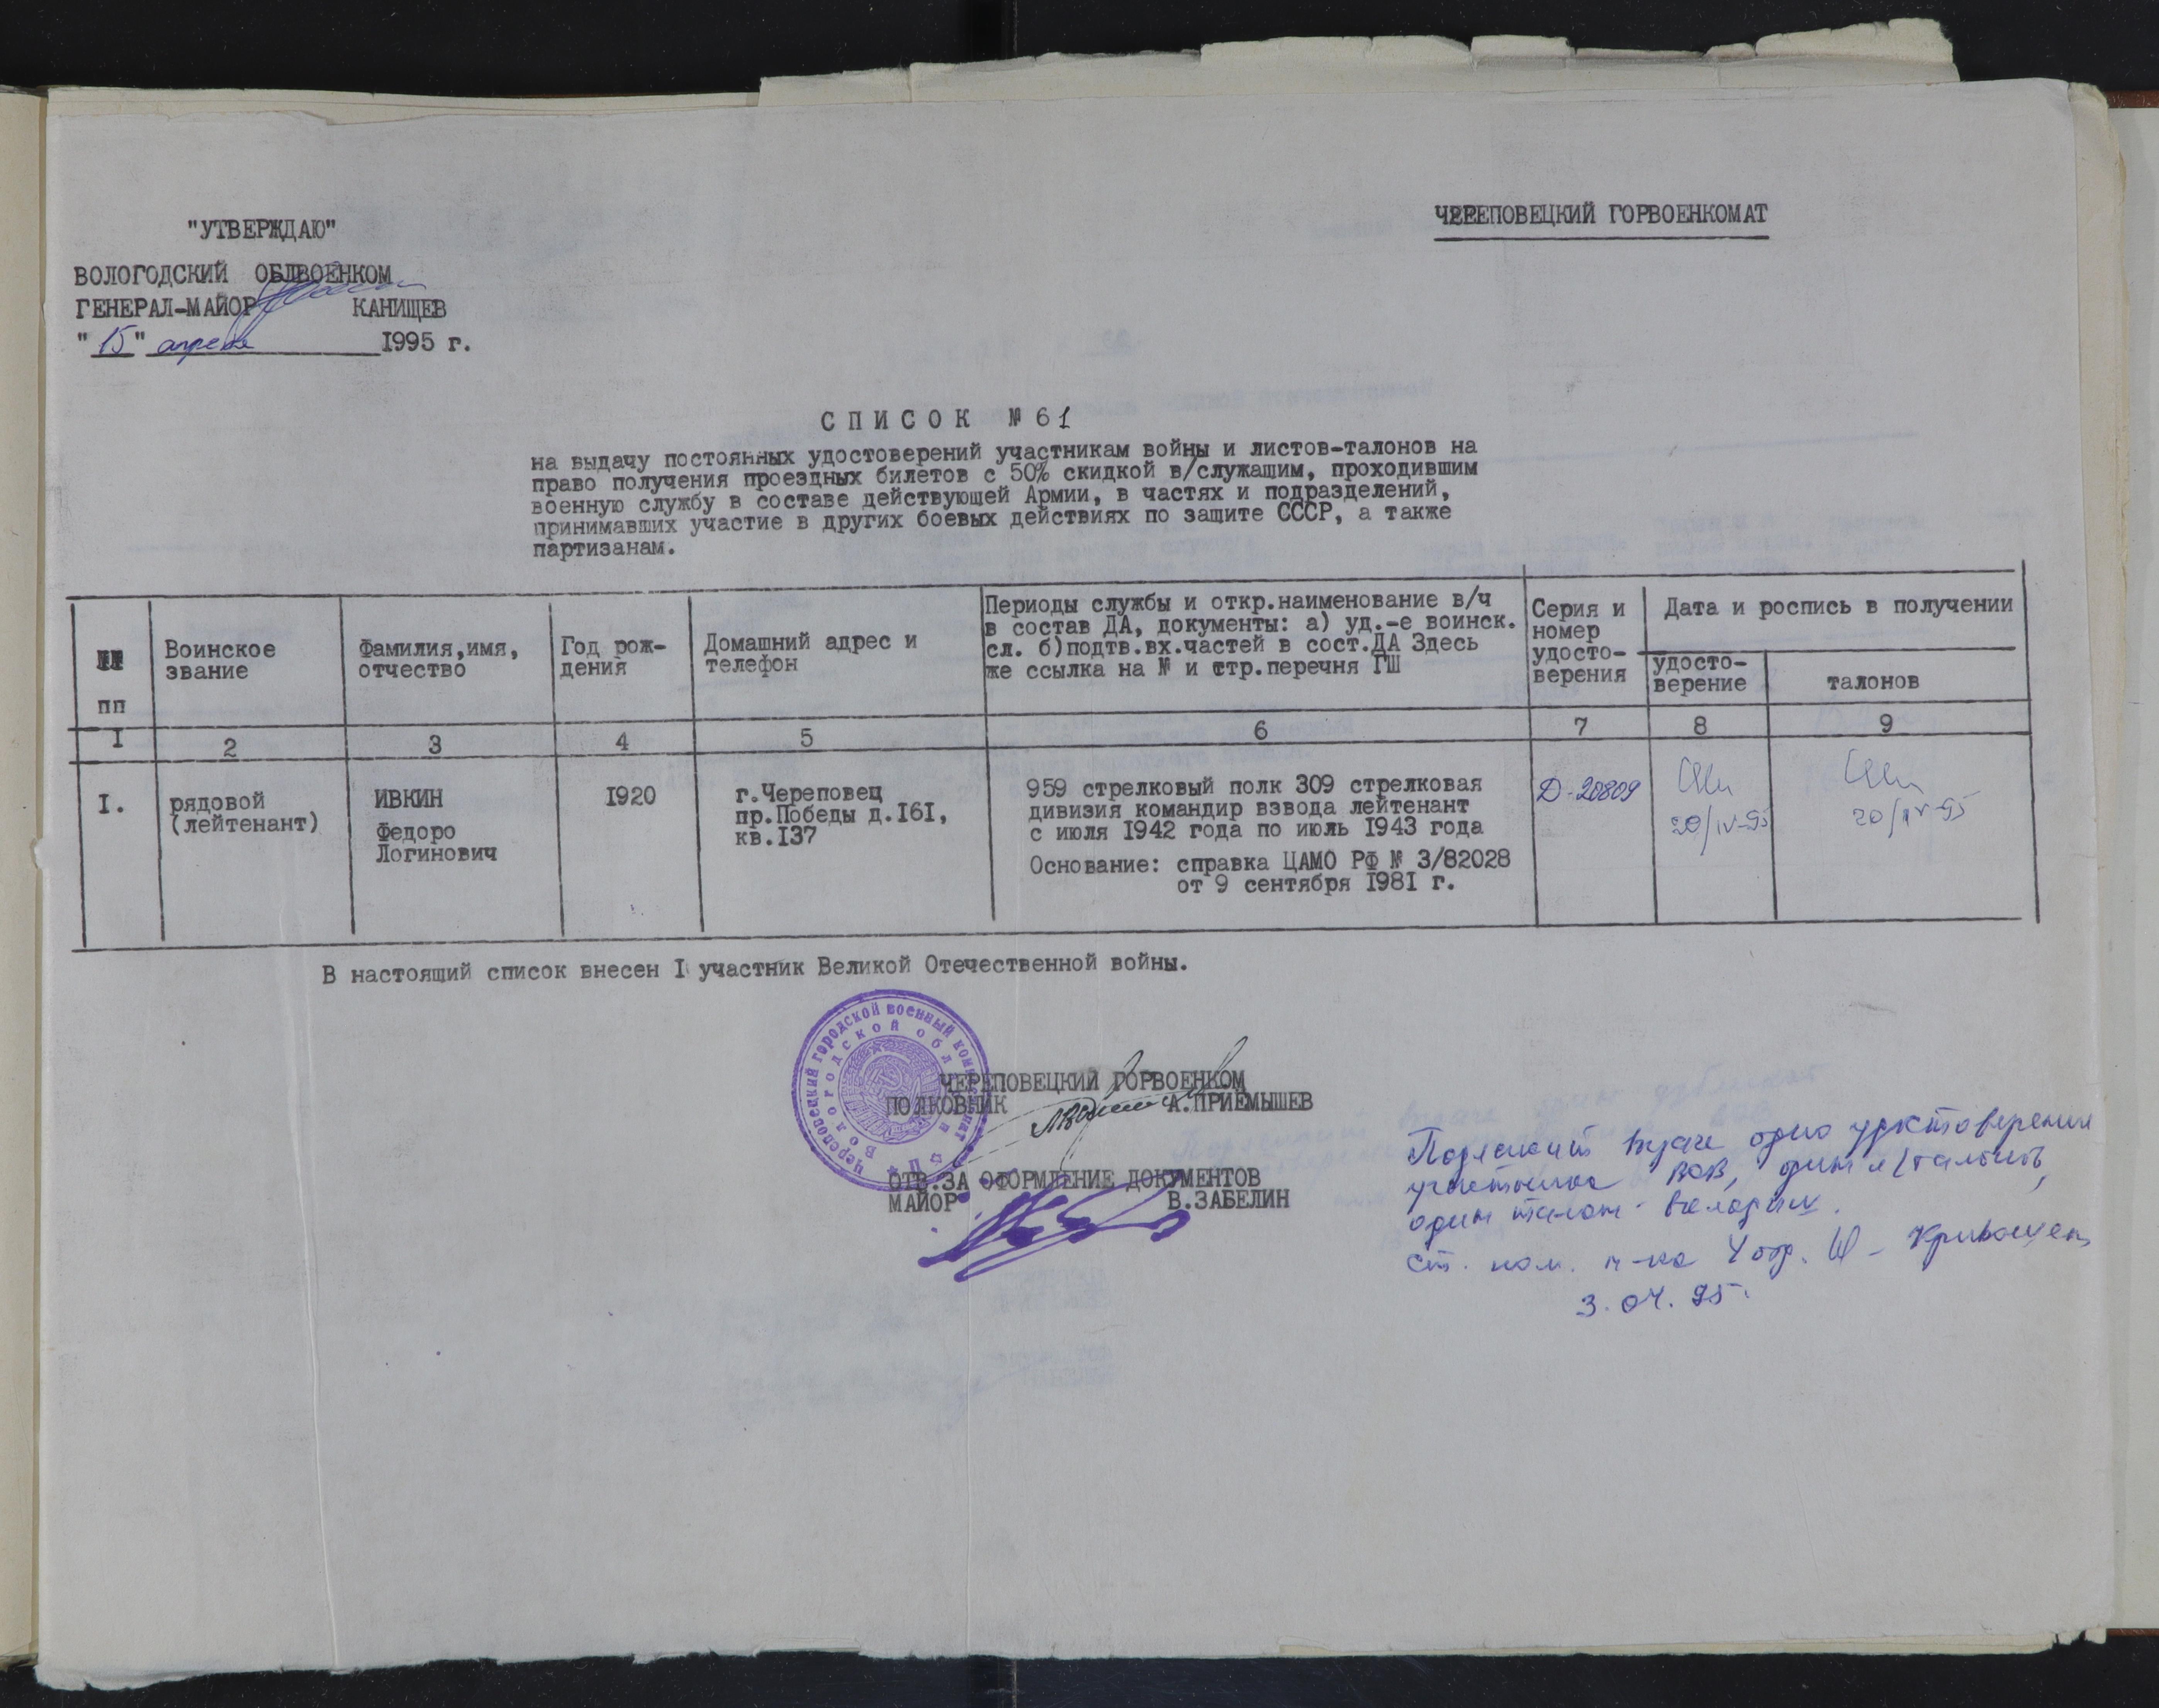 "УТВЕРЖДАЮ"
ВОЛОГОДСКИЙ ОБЛВОЕНКОМ
ГЕНЕРАЛ-МАЙОР КАНИЩЕВ
"15" апреля 1995 г.
ЧЕРЕПОВЕЦКИЙ ГОРВОЕНКОМАТ
СПИСОК № 61
на выдачу постоянных удостоверений участникам войны и листов-талонов на
право получения проездных билетов с 50% скидкой в/служащим, проходившим
военную службу в составе действующей Армии, в частях и подразделений,
принимавших участие в других боевых действиях по защите СССР, а также
партизанам.
пп
Воинское
звание
Фамилия,имя,
отчество
Год рож-
дения
Домашний адрес и
телефон
Периоды службы и откр.наименование в/ч
в состав ДА, документы: а) уд.-е воинск.
сл. б)подтв.вх.частей в сост.ДА Здесь
же ссылка на № и стр.перечня ГШ
Серия и
номер
удосто-
верения
Дата и роспись в получении
удосто-
верение
талонов
I 2 3 4 5 6 7 8 9
I.
рядовой
(лейтенант)
ИВКИН
Федоро
Логинович
I920
г.Череповец
пр.Победы д.I6I,
кв.I37
959 стрелковый полк 309 стрелковая
дивизия командир взвода лейтенант
с июля I942 года по июль I943 года
Основание: справка ЦАМО РФ № 3/82028
от 9 сентября I98I г.
Д-20809
20/IV-95
20/IV-95
В настоящий список внесен I участник Великой Отечественной войны.
Череповецкий городской военный комиссариат
Вологодской обл
ЧЕРЕПОВЕЦКИЙ ГОРВОЕНКОМ
ПОЛКОВНИК А.ПРИЕМЫШЕВ
ОТВ.ЗА ОФОРМЛЕНИЕ ДОКУМЕНТОВ
МАЙОР В.ЗАБЕЛИН
Подлежит выдаче одно удостоверения
участника ВОВ, один л/талонов,
один талон-вкладыш.
ст. пом. н-ка 4 отд.
3.04.95.